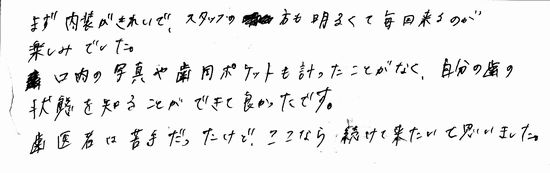 まず内装がきれいで、スタッフの方も明るくて毎回来るのが
楽しみでした。
口内の写真や歯周ポケットも計ったことがなく、自分の歯の
状態を知ることができて良かったです。
歯医者は苦手だったけど、ここなら続けて来たいと思いました。